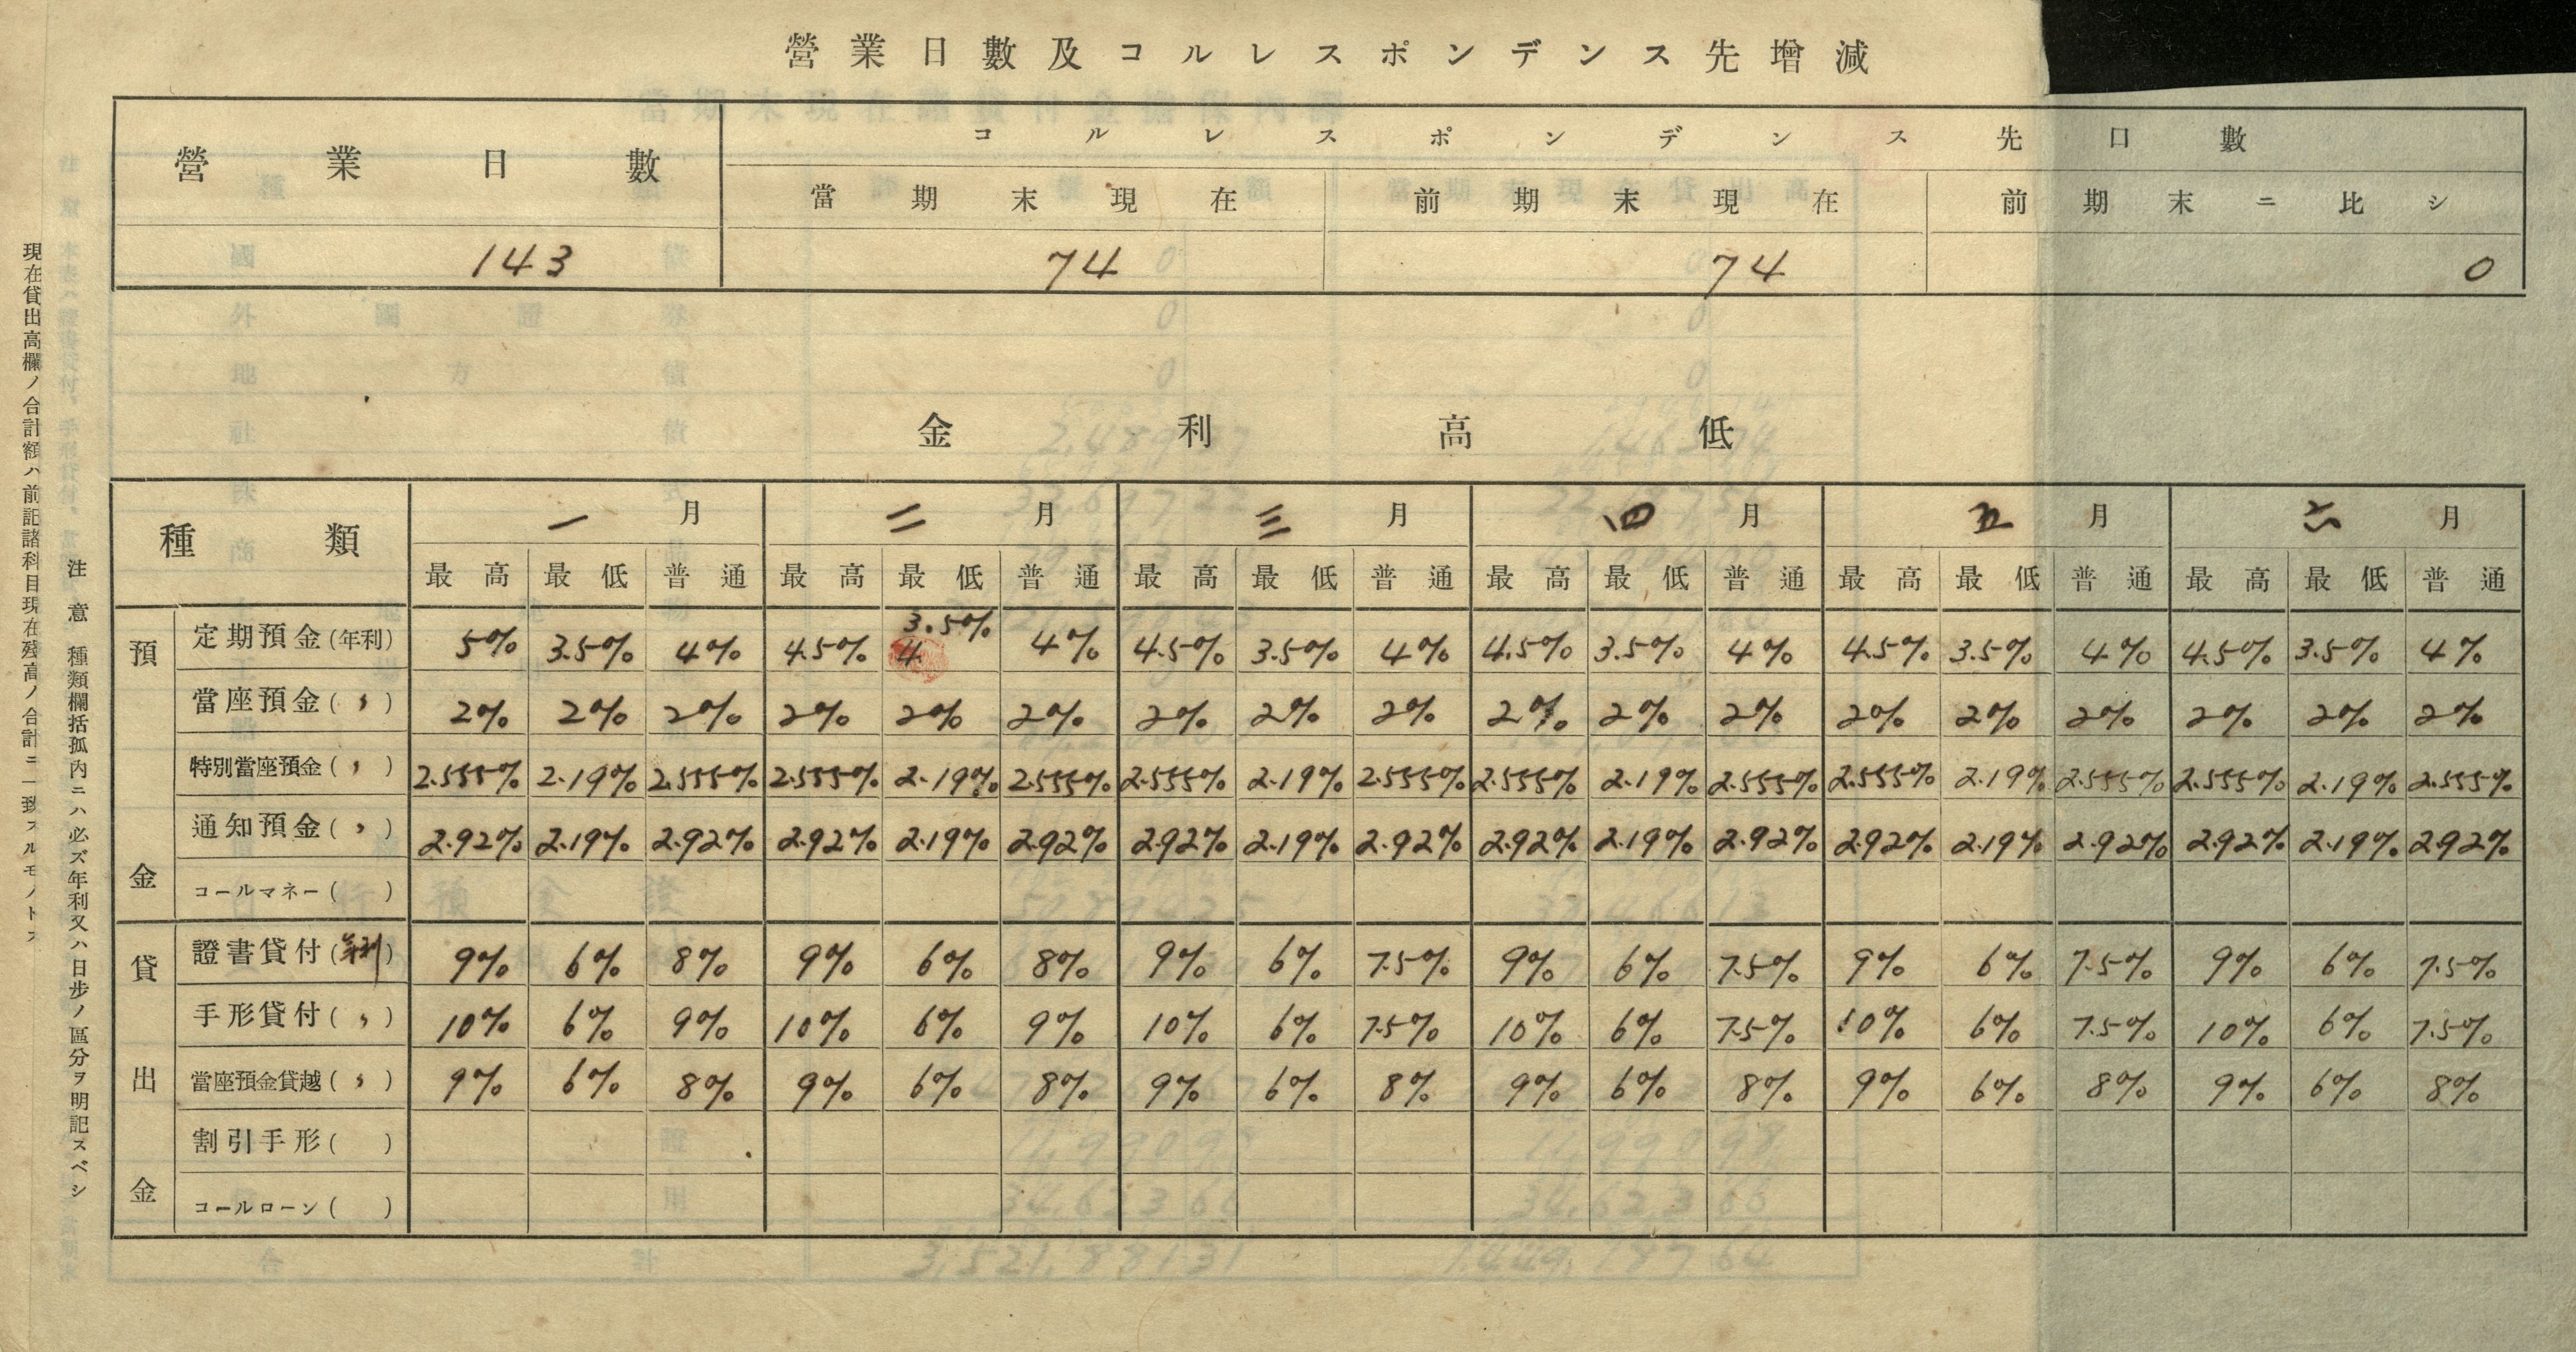 營業日數及コルレスポンデンス先增減
營業日數 コルレスポンデンス先口數
當期末現在 前期末現在 前期末ニ比シ
143 74 74 0
金利高低
種類 一月 二月 三月 四月 五月 六月
最高 最低 普通 最高 最低 普通 最高 最低 普通 最高 最低 普通 最高 最低 普通 最高 最低 普通
預金
定期預金(年利) 5% 3.5% 4% 4.5% 4. 3.5% 4% 4.5% 3.5% 4% 4.5% 3.5% 4% 4.5% 3.5% 4% 4.5% 3.5% 4%
當座預金(〃) 2% 2% 2% 2% 2% 2% 2% 2% 2% 2% 2% 2% 2% 2% 2% 2% 2% 2%
特別當座預金(〃) 2.555% 2.19% 2.555% 2.555% 2.19% 2.555% 2.555% 2.19% 2.555% 2.555% 2.19% 2.555% 2.555% 2.19% 2.555% 2.555% 2.19% 2.555%
通知預金(〃) 2.92% 2.19% 2.92% 2.92% 2.19% 2.92% 2.92% 2.19% 2.92% 2.92% 2.19% 2.92% 2.92% 2.19% 2.92% 2.92% 2.19% 2.92%
コールマネー( )
貸出金
證書貸付(年利) 9% 6% 8% 9% 6% 8% 9% 6% 7.5% 9% 6% 7.5% 9% 6% 7.5% 9% 6% 7.5%
手形貸付(〃) 10% 6% 9% 10% 6% 9% 10% 6% 7.5% 10% 6% 7.5% 10% 6% 7.5% 10% 6% 7.5%
當座預金貸越(〃) 9% 6% 8% 9% 6% 8% 9% 6% 8% 9% 6% 8% 9% 6% 8% 9% 6% 8%
割引手形( )
コールローン( )
注意 種類欄括孤內ニハ必ズ年利又ハ日步ノ區分ヲ明記スベシ
現在貸出高欄ノ合計額ハ前記諸科目現在殘高ノ合計ニ一致スルモノトス